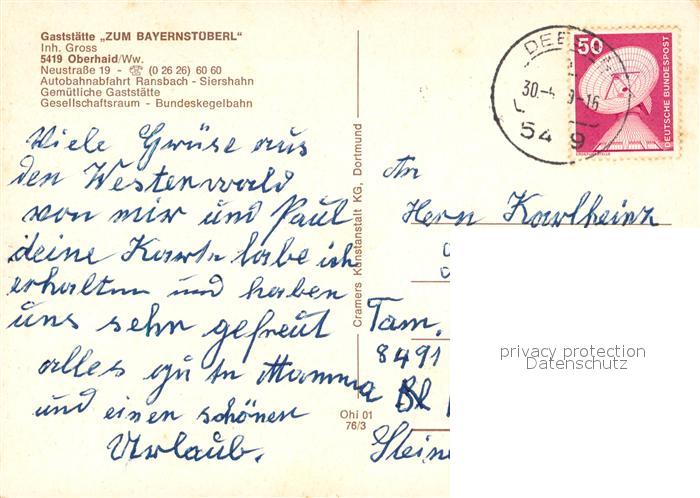 Gaststätte „ZUM BAYERNSTÜBERL"
Inh. Gross
5419 Oberhaid/Ww.
Neustraße 19 - ☏ (0 26 26) 60 60
Autobahnabfahrt Ransbach - Siershahn
Gemütliche Gaststätte
Gesellschaftsraum - Bundeskegelbahn
Viele Grüse aus
den Westerwald
von mir und Paul
deine Karte habe ich
erhalten und haben
uns sehr gefreut
alles gute Mamma
und einen schönen
Urlaub.
Cramers Kunstanstalt KG, Dortmund
Ohi 01
76/3
30.
-16
54 9
50
DEUTSCHE BUNDESPOST
An
Herrn Karlheinz
Fam.
8491
Stein
privacy protection
Datenschutz